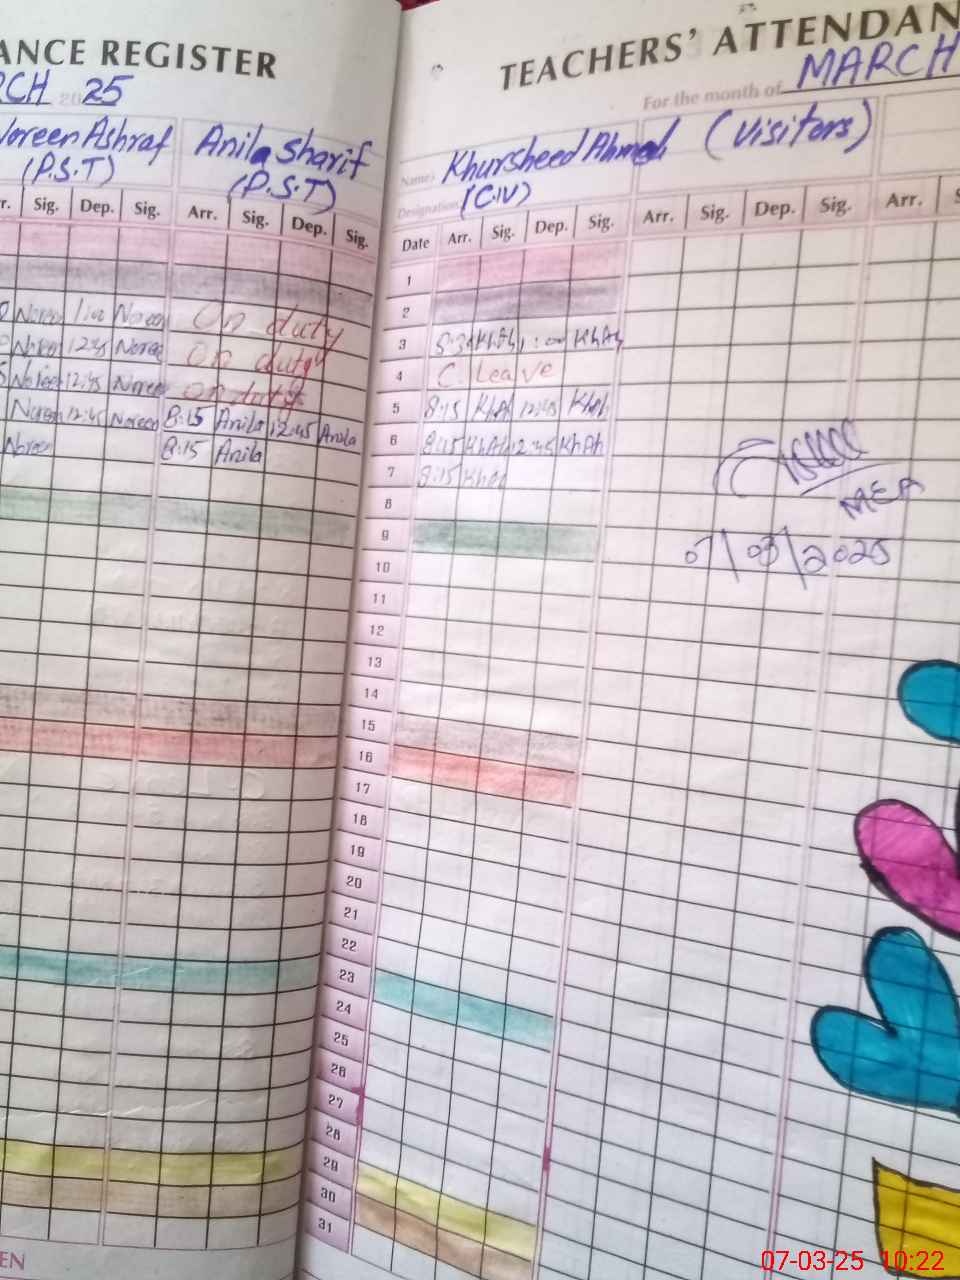 ANCE REGISTER
RCH 2025
Noreen Ashraf
(P.S.T)
Anila Sharif
(P.S.T)
r. Sig. Dep. Sig. Arr. Sig. Dep. Sig.
Noreen 1:00 Noreen On duty
Noreen 12:45 Noreen On duty
Noreen 12:45 Noreen On duty
Noreen 12:45 Noreen 8:15 Anila 12:45 Anila
Noreen 8:15 Anila
EN
TEACHERS' ATTENDAN
For the month of MARCH
Name: Khursheed Ahmed (Visitors)
Designation: (C.IV)
Date Arr. Sig. Dep. Sig. Arr. Sig. Dep. Sig. Arr. S
1
2
3 8:30 KhAh 1:00 KhAh
4 C. Leave
5 8:15 KhAh 12:45 KhAh
6 8:15 KhAh 12:45 KhAh
7 8:15 KhAh
8
9
10
11
12
13
14
15
16
17
18
19
20
21
22
23
24
25
26
27
28
29
30
31
MEA
07/03/2025
07-03-25 10:22